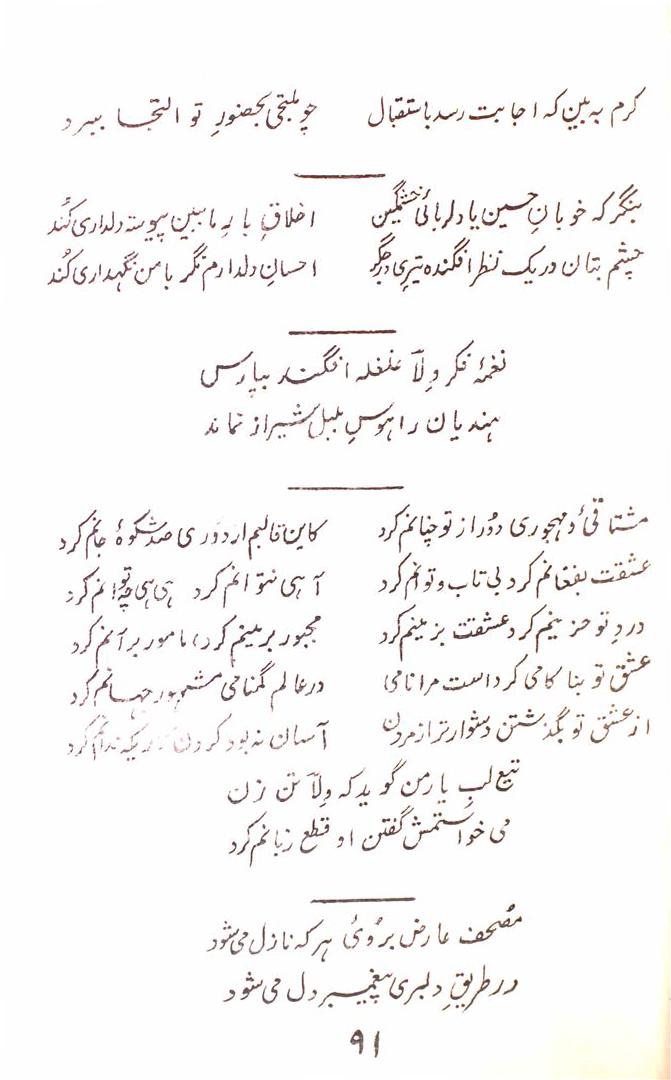 کرم به بین که اجابت رسد باستقبال چو ملتجی بحضورِ تو التجا ببرد
بنگر که خوبانِ حسین یا دلربائی خشمگین اخلاقِ با به ما ببین پیوسته دلداری کُند
چشم بتان در یک نظر افگنده تیری در جگر احسانِ دلدارم نگر با من نگهداری کُند
نغمۂ فکرِ وِلآ غلغله افگند بپارس
هندیان را هوسِ بلبل شیراز نماند
مشتاقی و مهجوری دُور از تو چنانم کرد کاین قالبم از دوری صد شکوۂ جانم کرد
عشقت بفغانم کرد بی تاب و توانم کرد آهی نتوانم کرد هی هی چه توانم کرد
دردِ تو حزینم کرد عشقت بزمینم کرد مجبور برینم کرد، مامور برآنم کرد
عشق تو بناکامی کرد است مرا نامی در عالم گمنامی مشهورِ جهانم کرد
از عشق تو بگذشتن دشوارتر از مردن آسان نه بود کردن
تیغِ لبِ یار من گوید که وِلآ تن زن
می خواستمش گفتن او قطع زبانم کرد
مُصحفِ عارض بروُئ هر که نازل می شود
در طریقِ دلبری پیغمبرِ دل می شود
۹۱